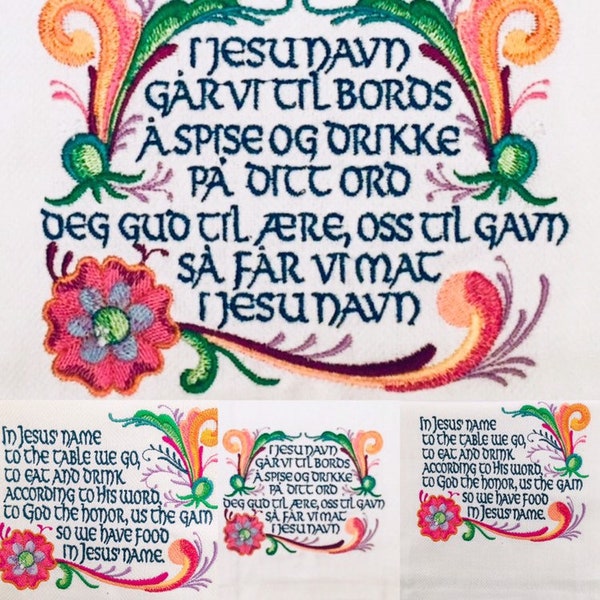 I JESU NAVN
GÅR VI TIL BORDS
Å SPISE OG DRIKKE
PÅ DITT ORD
DEG GUD TIL ÆRE, OSS TIL GAVN
SÅ FÅR VI MAT
I JESU NAVN
In Jesus' name
to the table we go,
to eat and drink
according to His word,
to God the honor, us the gain
so we have food
in Jesus' name.
I JESU NAVN
GÅR VI TIL BORDS
Å SPISE OG DRIKKE
PÅ DITT ORD
DEG GUD TIL ÆRE, OSS TIL GAVN
SÅ FÅR VI MAT
I JESU NAVN
In Jesus' name
to the table we go,
to eat and drink
according to His word,
to God the honor, us the gain
so we have food
in Jesus' name.